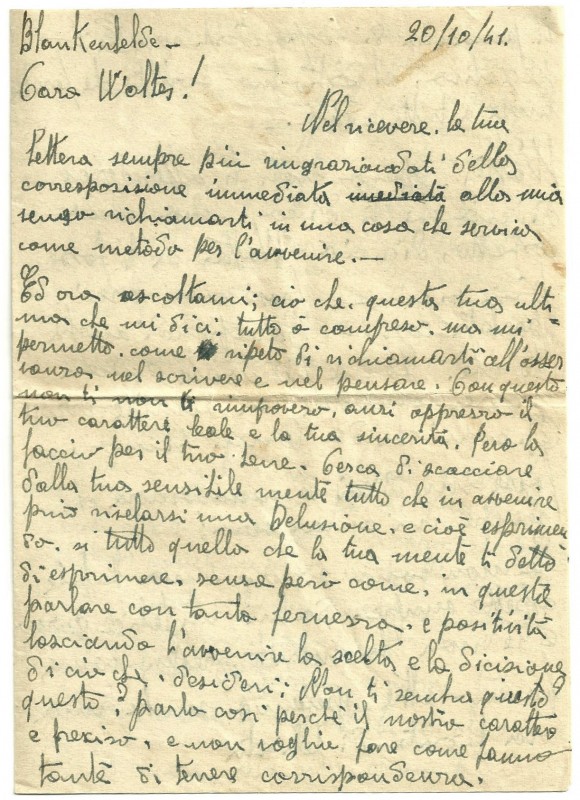 Blankenfelde – 20/10/41.
Cara Walter!
Nel ricevere. la tua
lettera sempre più ringraziandoti della
corresposisione immediata imediata alla mia
vengo richiamarti in una cosa che serviva
come metodo per l'avvenire. —
Ed ora ascoltami; ciò che, questa tua ulti=
ma che mi dici. tutto ò compreso. ma mi
permetto. come ripeto di richiamarti all'osser
vanza nel scrivere e nel pensare. Con questo
non ti non ti rimprovero, anzi appresso il
tuo carattere leale e la tua sincerità. Pero lo
faccio per il tuo bene. Cerca di scacciare
dalla tua sensibile mente tutto che in avvenire
può rivelarsi una Delusione, e cioè esprimen
do. si tutto quello che la tua mente ti detta
di esprimere, sensa però come, in questa
parlare con tanta fermezza, e positività
lasciando l'avvenire la scelta e la dicisione
di ciò che, desideri; Non ti sembra giusto
questo? parlo così perché il nostro carattere
e preciso, e non voglio fare come fanno
tante di tenere corrispondenza.